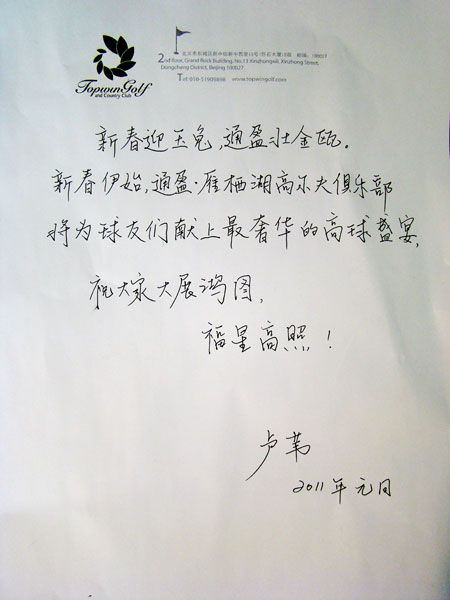 北京市东城区新中街新中西里13号巨石大厦2层 邮编:100027
2nd floor, Grand Rock Building, No.13 Xinzhongxili, Xinzhong Street,
Dongcheng District, Beijing 100027
Tel:010-51909898 www.topwingolf.com
Topwin Golf
and Country Club
新春迎玉兔,通盈壮金瓯.
新春伊始,通盈·雁栖湖高尔夫俱乐部
将为球友们献上最奢华的高球盛宴,
祝大家大展鸿图,
福星高照!
卢苇
2011年元日